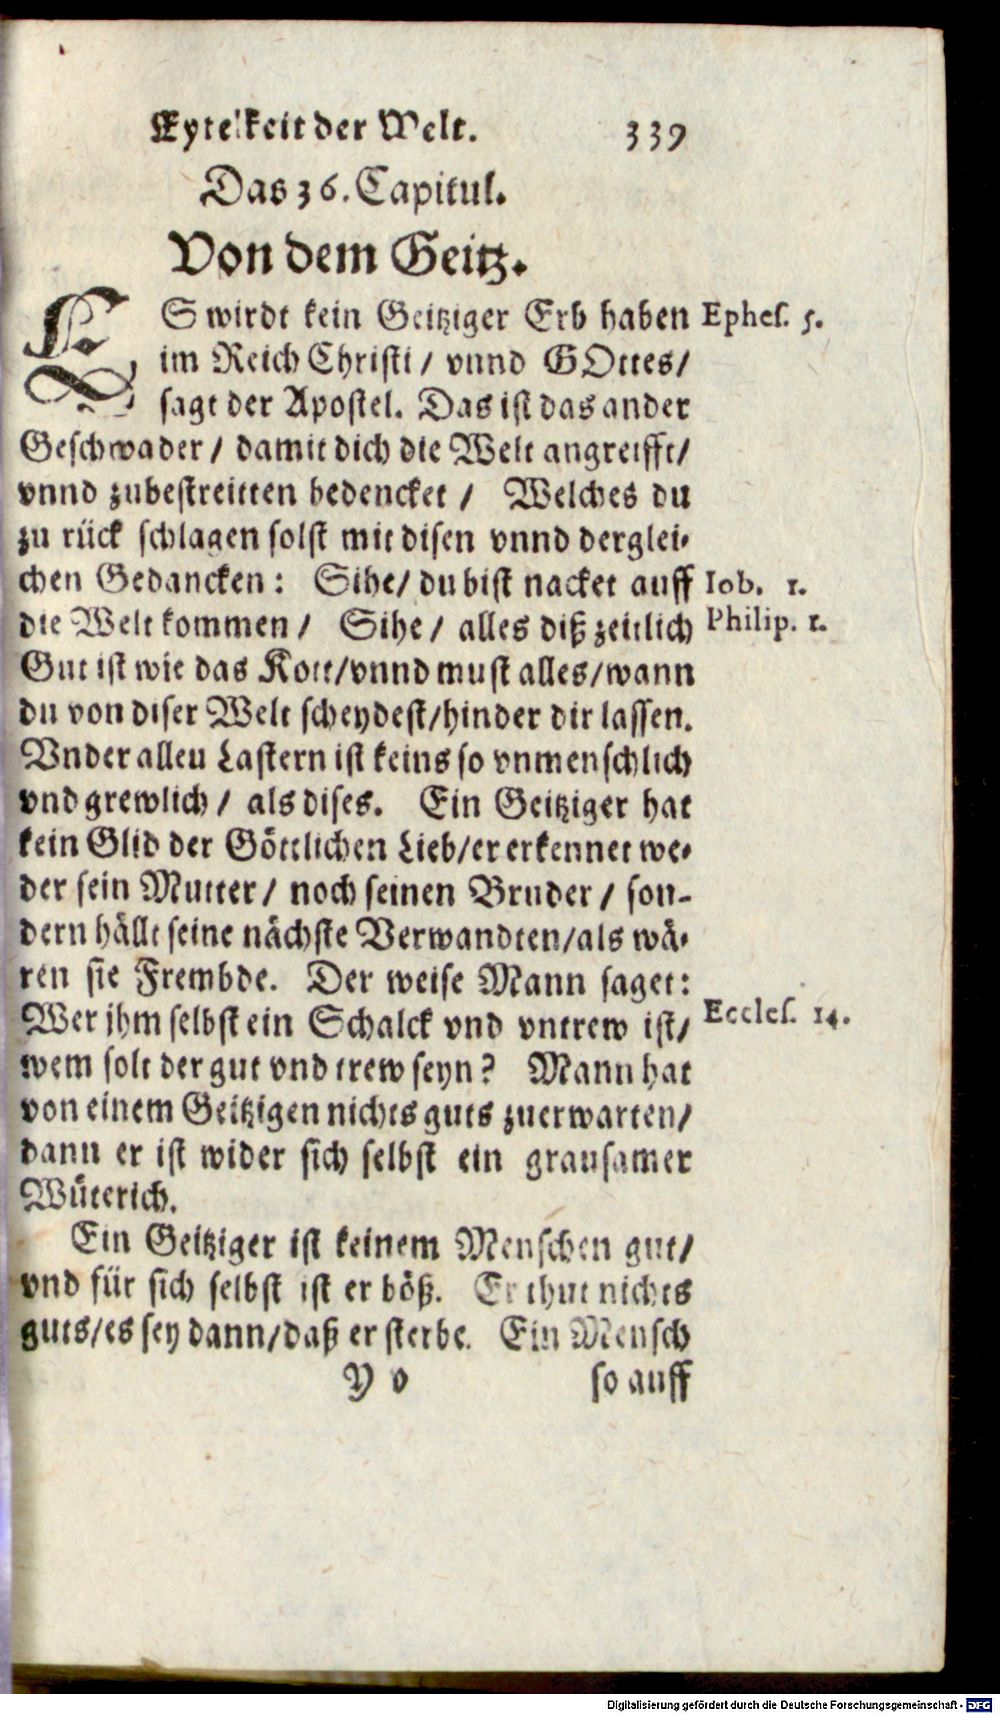 Eytelkeit der Welt. 339
Das 36. Capitul.
Von dem Geitz.
ES wirdt kein Geitziger Erb haben Ephes. 5.
im Reich Christi / vnnd GOttes /
sagt der Apostel. Das ist das ander
Geschwader / damit dich die Welt angreifft /
vnnd zubestreitten bedencket / Welches du
zu rück schlagen solst mit disen vnnd derglei-
chen Gedancken: Sihe / du bist nacket auff Iob. 1.
die Welt kommen / Sihe / alles diß zeitlich Philip. 1.
Gut ist wie das Kott / vnnd must alles / wann
du von diser Welt scheydest / hinder dir lassen.
Vnder alleu Lastern ist keins so vnmenschlich
vnd grewlich / als dises. Ein Geitziger hat
kein Glid der Göttlichen Lieb / er erkennet we-
der sein Mutter / noch seinen Bruder / son-
dern hällt seine nächste Verwandten / als wä-
ren sie Frembde. Der weise Mann saget:
Wer jhm selbst ein Schalck vnd vntrew ist / Eccles. 14.
wem solt der gut vnd trew seyn? Mann hat
von einem Geitzigen nichts guts zuerwarten /
dann er ist wider sich selbst ein grausamer
Wüterich.
Ein Geitziger ist keinem Menschen gut /
vnd für sich selbst ist er böß. Er thut nichts
guts / es sey dann / daß er sterbe. Ein Mensch
Y v so auff
Digitalisierung gefördert durch die Deutsche Forschungsgemeinschaft - DFG